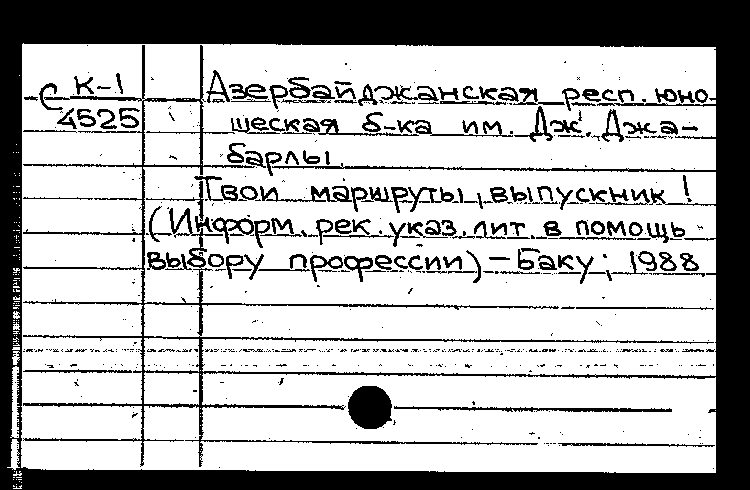 С К-1
4525
Азербайджанская респ. юно-
шеская б-ка им. Дж. Джа-
барлы.
Твои маршруты, выпускник!
(Информ. рек. указ. лит. в помощь
выбору профессии) – Баку; 1988.